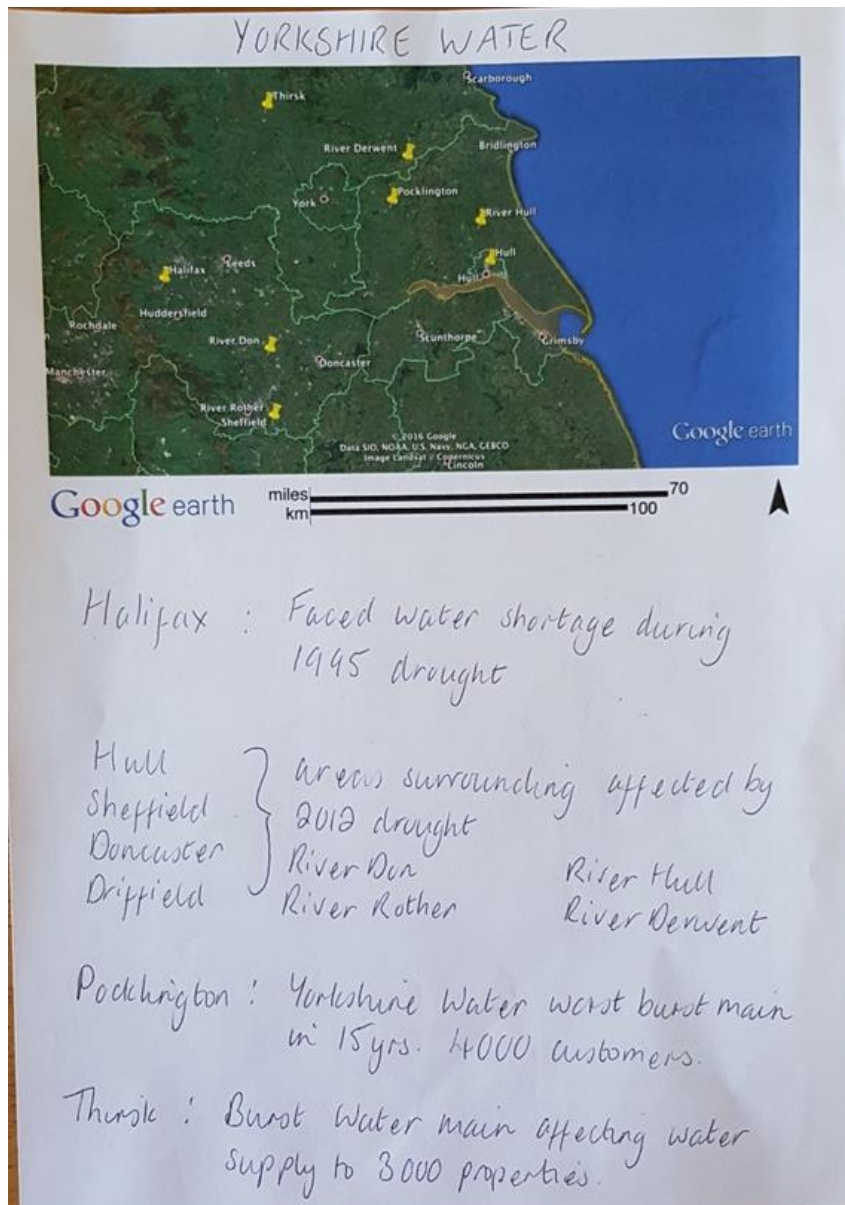 YORKSHIRE WATER
Scarborough
Thirsk
River Derwent
Bridlington
Pocklington
York
River Hull
Hull
Halifax
Leeds
Hull
Huddersfield
Rochdale
River Don
Scunthorpe
Grimsby
Doncaster
Manchester
River Rother
Sheffield
© 2016 Google
Data SIO, NOAA, U.S. Navy, NGA, GEBCO
Image Landsat / Copernicus
Lincoln
Google earth
Google earth
miles 70
km 100
Halifax : Faced water shortage during
1995 drought
Hull
Sheffield
Doncaster
Driffield
areas surrounding affected by
2012 drought
River Don River Hull
River Rother River Derwent
Pocklington : Yorkshire Water worst burst main
in 15yrs. 4000 customers.
Thirsk : Burst Water main affecting water
supply to 3000 properties.